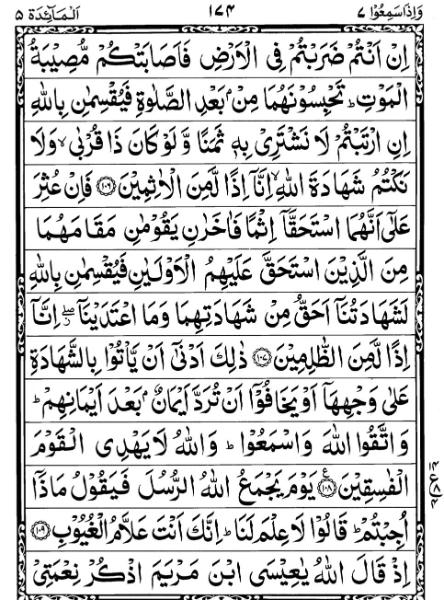 وَاِذَا سَمِعُوْا ٧ ١٧٤ اَلْمَآئِدَة ٥
اِنْ اَنْتُمْ ضَرَبْتُمْ فِى الْاَرْضِ فَاَصَابَتْكُمْ مُّصِيْبَةُ
الْمَوْتِ ؕ تَحْبِسُوْنَهُمَا مِنْۢ بَعْدِ الصَّلٰوةِ فَيُقْسِمٰنِ بِاللّٰهِ
اِنِ ارْتَبْتُمْ لَا نَشْتَرِىْ بِهٖ ثَمَنًا وَّلَوْ كَانَ ذَا قُرْبٰى ۙ وَلَا
نَكْتُمُ شَهَادَةَ اللّٰهِ اِنَّاۤ اِذًا لَّمِنَ الْاٰثِمِيْنَ ﴿١٠٦﴾ فَاِنْ عُثِرَ
عَلٰٓى اَنَّهُمَا اسْتَحَقَّاۤ اِثْمًا فَاٰخَرٰنِ يَقُوْمٰنِ مَقَامَهُمَا
مِنَ الَّذِيْنَ اسْتَحَقَّ عَلَيْهِمُ الْاَوْلَيٰنِ فَيُقْسِمٰنِ بِاللّٰهِ
لَشَهَادَتُنَاۤ اَحَقُّ مِنْ شَهَادَتِهِمَا وَمَا اعْتَدَيْنَاۤ ۖ اِنَّاۤ
اِذًا لَّمِنَ الظّٰلِمِيْنَ ﴿١٠٧﴾ ذٰلِكَ اَدْنٰٓى اَنْ يَّاْتُوْا بِالشَّهَادَةِ
عَلٰى وَجْهِهَاۤ اَوْ يَخَافُوْۤا اَنْ تُرَدَّ اَيْمَانٌۢ بَعْدَ اَيْمَانِهِمْ ؕ
وَاتَّقُوا اللّٰهَ وَاسْمَعُوْا ؕ وَاللّٰهُ لَا يَهْدِى الْقَوْمَ
الْفٰسِقِيْنَ ﴿١٠٨﴾ يَوْمَ يَجْمَعُ اللّٰهُ الرُّسُلَ فَيَقُوْلُ مَاذَاۤ
اُجِبْتُمْ ؕ قَالُوْا لَا عِلْمَ لَنَا ؕ اِنَّكَ اَنْتَ عَلَّامُ الْغُيُوْبِ ﴿١٠٩﴾
اِذْ قَالَ اللّٰهُ يٰعِيْسَى ابْنَ مَرْيَمَ اذْكُرْ نِعْمَتِىْ